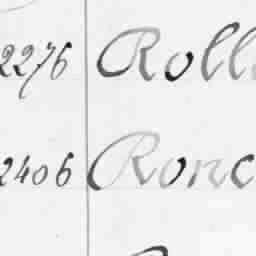 2276 Roll
2406 Ronc